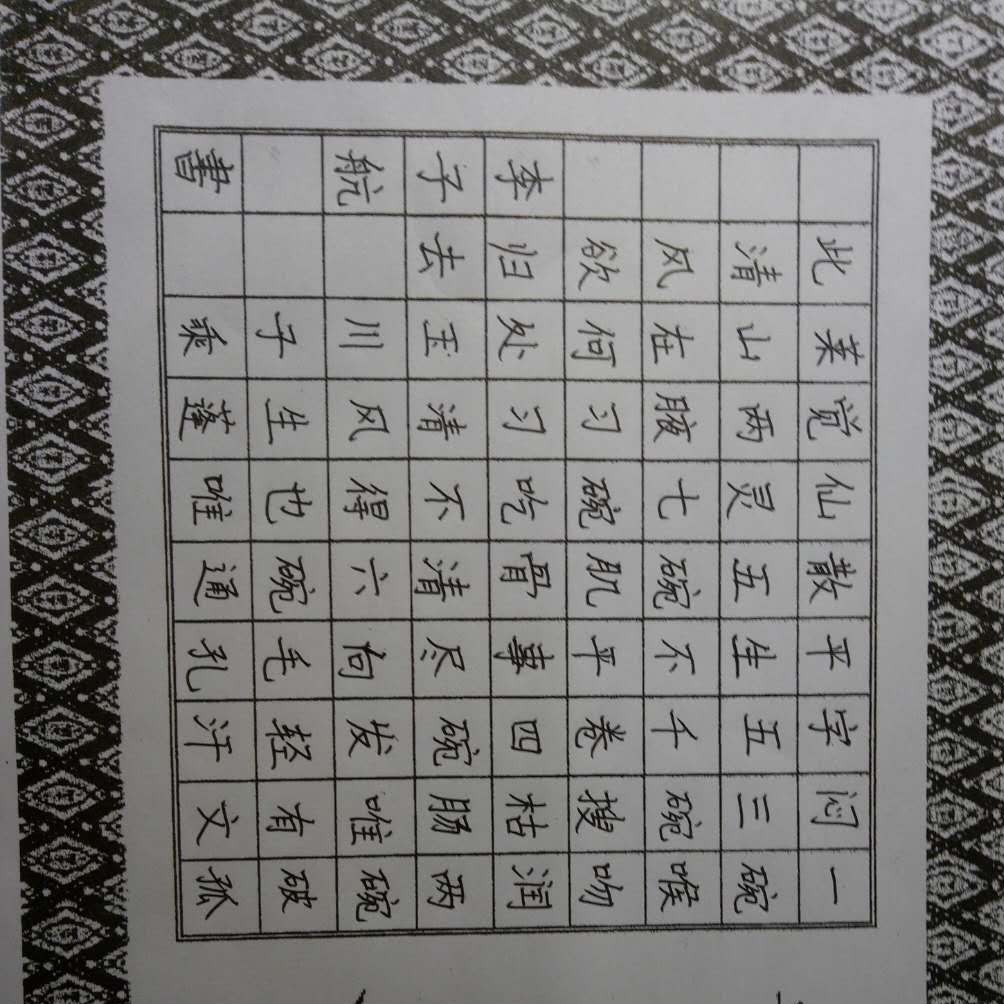 一碗喉吻润两碗破孤
闷三碗搜枯肠唯有文
字五千卷四碗发轻汗
平生不平事尽向毛孔
散五碗肌骨清六碗通
仙灵七碗吃不得也唯
觉两腋习习清风生蓬
莱山在何处玉川子乘
此清风欲归去
李子航 書